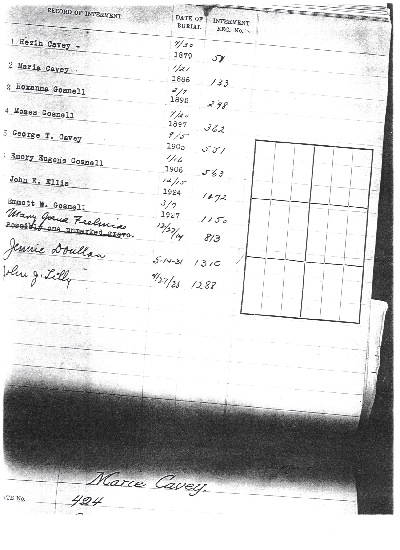 RECORD OF INTERMENT DATE OF BURIAL INTERMENT REG. NO.
1 Rezin Cavey 7/30 1879 58
2 Maria Cavey 1/21 1886 133
3 Roxanna Gosnell 2/7 1895 248
4 Moses Gosnell 1897 362
5 George T. Cavey 9/5 1905 551
Emory Eugene Gosnell 1/16 1906 563
John E. Ellis 12/15 1924
Emmott W. Gosnell 3/7 1927 1150
Mary Jane 12/27/14 813
Possibly one unmarked grave.
Jennie 5-14-31 1310
John J. Lilly 4/27/28 1288
Marie Cavey.
TE No. 424